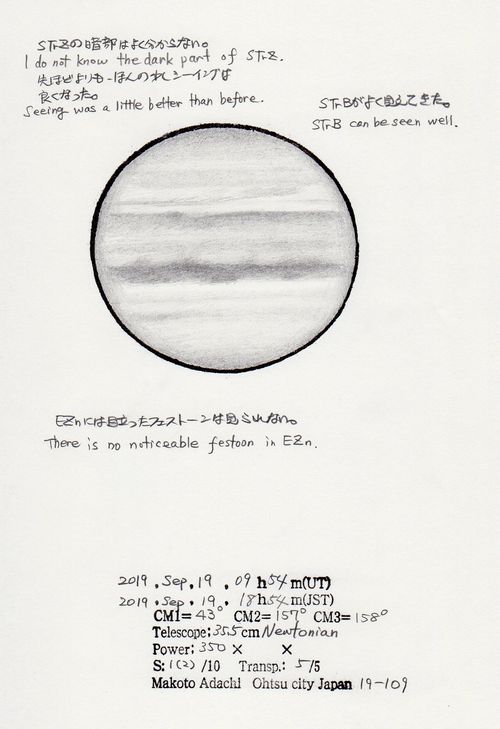 STrZの暗部はよく分からない。
I do not know the dark part of STrZ.
先ほどよりも-ほんの少しシーイングは
良くなった。
Seeing was a little better than before.
STrBがよく見えてきた。
STrB can be seen well.
EZnには目立ったフェストーンは見られない。
There is no noticeable festoon in EZn.
2019.Sep.19.09h54m(UT)
2019.Sep.19.18h54m(JST)
CM1=43° CM2=157° CM3=158°
Telescope:355cm Newtonian
Power:350× ×
S:1(2)/10 Transp.:5/5
Makoto Adachi Ohtsu city Japan 19-109